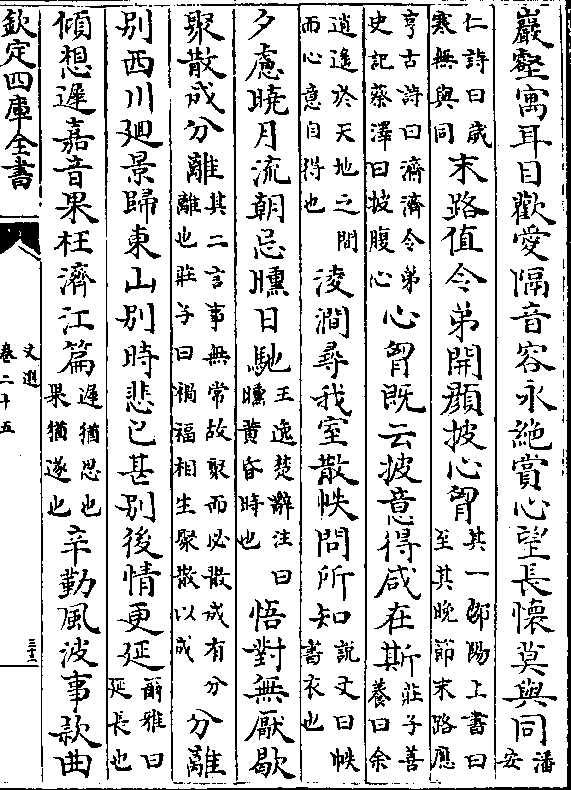 巖壑寓耳目歡愛隔音容永絶賞心望長懷莫與同潘安
仁詩曰歲寒無與同末路值令弟開顔披心胷其一鄒陽上書曰至其晚節末路應
亨古詩曰濟濟令弟史記蔡澤曰披腹心心胷既云披意得咸在斯莊子善養曰余
逍遙於天地之間而心意自得也淩澗尋我室散帙問所知說文曰帙書衣也
夕慮曉月流朝忌曛日馳王逸楚辭注曰曛黄昏時也悟對無厭歇
聚散成分離其二言事無常故聚而必散成有分離也莊子曰禍福相生聚散以成分離
別西川廻景歸東山別時悲已甚別後情更延爾雅曰延長也
傾想遲嘉音果枉濟江篇遲猶思也果猶遂也辛勤風波事款曲
欽定四庫全書
文選
卷二十五